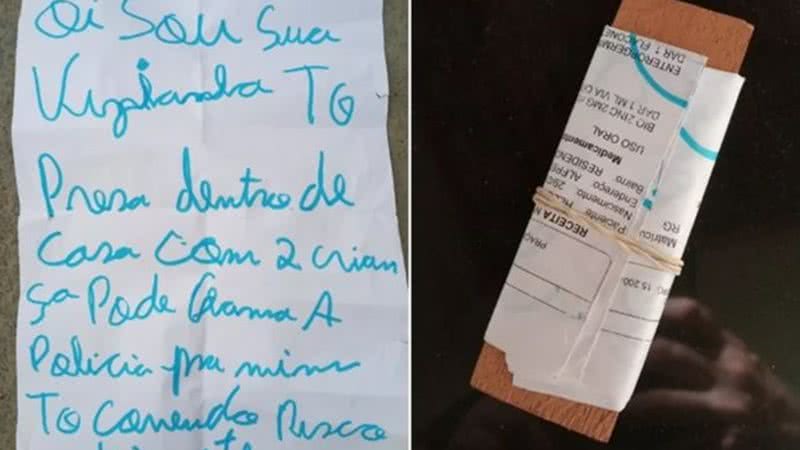 Oi Sou Sua
Vizianha To
Presa dentro de
Casa Com 2 crian
ça Pode Chama A
Policia pra mim
To Correndo Risco
ENTEROGERMI
DAR 1 FLACONE
BIO ZINC 2MG
DAR 1 ML VIA O
USO ORAL
Medicamento
RESIDEN
Bairro:
Endereço: ALFRE
Nascimento: 29/
Paciente:
RECEITA M
PRAÇ
Matrícu
RG
RG: 15.200